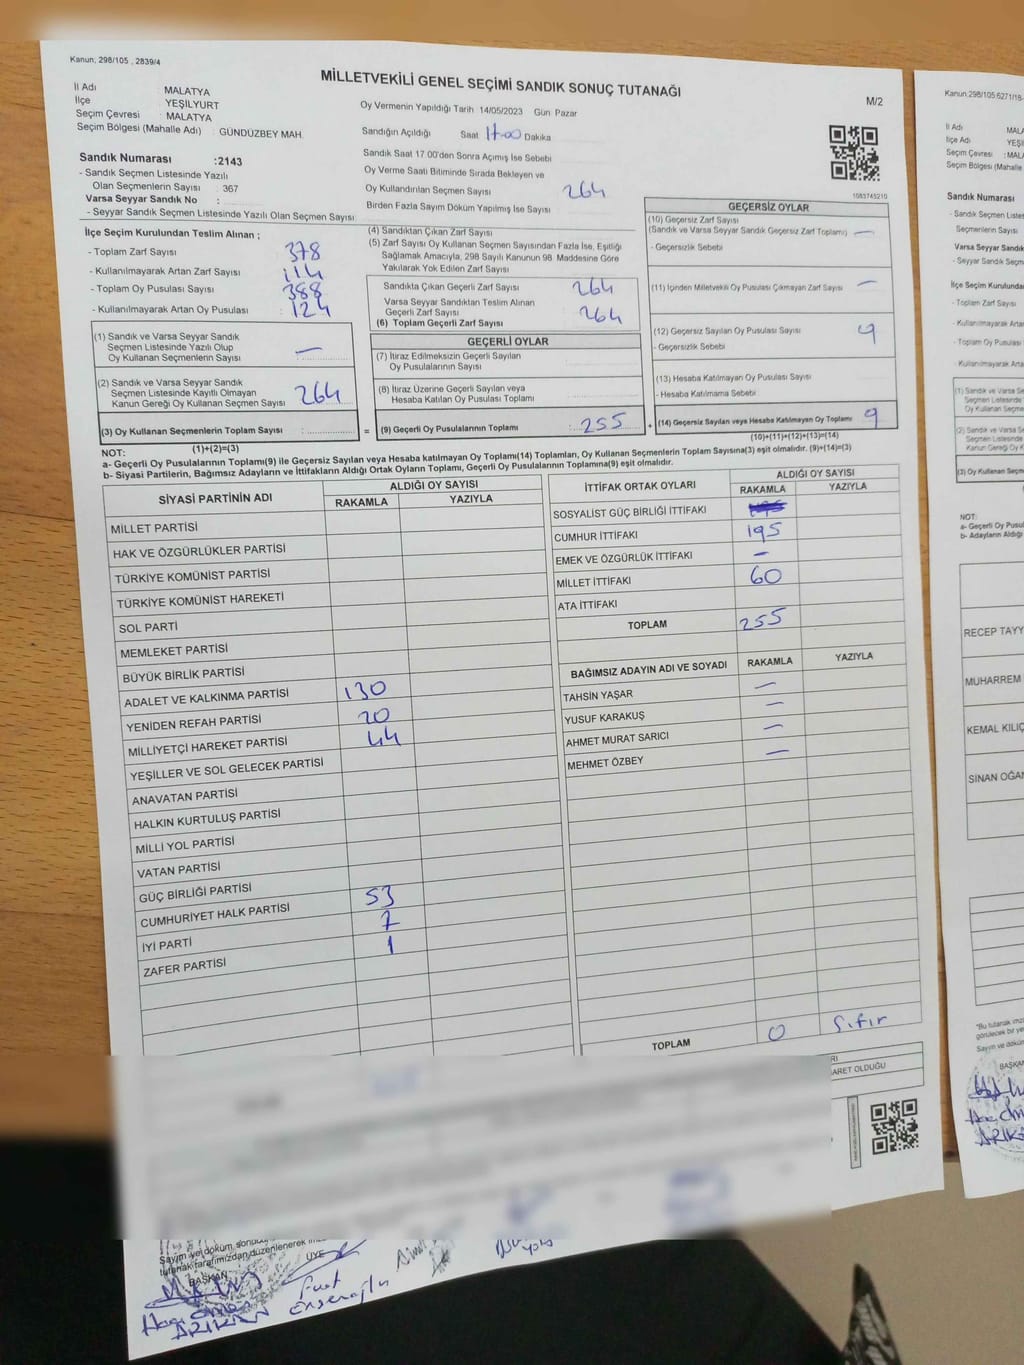 Kanun, 298/105 , 2839/4
MİLLETVEKİLİ GENEL SEÇİMİ SANDIK SONUÇ TUTANAĞI
M/2
İl Adı MALATYA
İlçe YEŞİLYURT
Seçim Çevresi : MALATYA
Seçim Bölgesi (Mahalle Adı) : GÜNDÜZBEY MAH.
Oy Vermenin Yapıldığı Tarih 14/05/2023 Gün Pazar
Sandığın Açıldığı Saat 17:00 Dakika
Sandık Saat 17 00'den Sonra Açımış İse Sebebi
Oy Verme Saati Bitiminde Sırada Bekleyen ve
Oy Kullandırılan Seçmen Sayısı 264
Birden Fazla Sayım Döküm Yapılmış İse Sayısı
Sandık Numarası :2143
- Sandık Seçmen Listesinde Yazılı
Olan Seçmenlerin Sayısı : 367
Varsa Seyyar Sandık No :
- Seyyar Sandık Seçmen Listesinde Yazılı Olan Seçmen Sayısı:
1083745210
İlçe Seçim Kurulundan Teslim Alınan ;
- Toplam Zarf Sayısı : 378
- Kullanılmayarak Artan Zarf Sayısı : 114
- Toplam Oy Pusulası Sayısı : 388
- Kullanılmayarak Artan Oy Pusulası : 124
(1) Sandık ve Varsa Seyyar Sandık
Seçmen Listesinde Yazılı Olup
Oy Kullanan Seçmenlerin Sayısı : —
(2) Sandık ve Varsa Seyyar Sandık
Seçmen Listesinde Kayıtlı Olmayan
Kanun Gereği Oy Kullanan Seçmen Sayısı : 264
(3) Oy Kullanan Seçmenlerin Toplam Sayısı : =
(1)+(2)=(3)
(4) Sandıktan Çıkan Zarf Sayısı :
(5) Zarf Sayısı Oy Kullanan Seçmen Sayısından Fazla İse, Eşitliği
Sağlamak Amacıyla, 298 Sayılı Kanunun 98 Maddesine Göre
Yakılarak Yok Edilen Zarf Sayısı :
Sandıkta Çıkan Geçerli Zarf Sayısı : 264
Varsa Seyyar Sandıktan Teslim Alınan
Geçerli Zarf Sayısı : 264
(6) Toplam Geçerli Zarf Sayısı :
GEÇERLİ OYLAR
(7) İtiraz Edilmeksizin Geçerli Sayılan
Oy Pusulalarının Sayısı :
(8) İtiraz Üzerine Geçerli Sayılan veya
Hesaba Katılan Oy Pusulası Toplamı :
(9) Geçerli Oy Pusulalarının Toplamı : 255 +
GEÇERSİZ OYLAR
(10) Geçersiz Zarf Sayısı
(Sandık ve Varsa Seyyar Sandık Geçersiz Zarf Toplamı) : —
- Geçersizlik Sebebi :
(11) İçinden Milletvekili Oy Pusulası Çıkmayan Zarf Sayısı : —
(12) Geçersiz Sayılan Oy Pusulası Sayısı : 9
- Geçersizlik Sebebi :
(13) Hesaba Katılmayan Oy Pusulası Sayısı :
- Hesaba Katılmama Sebebi :
(14) Geçersiz Sayılan veya Hesaba Katılmayan Oy Toplamı : 9
(10)+(11)+(12)+(13)=(14)
NOT:
a- Geçerli Oy Pusulalarının Toplamı(9) ile Geçersiz Sayılan veya Hesaba katılmayan Oy Toplamı(14) Toplamları, Oy Kullanan Seçmenlerin Toplam Sayısına(3) eşit olmalıdır. (9)+(14)=(3)
b- Siyasi Partilerin, Bağımsız Adayların ve İttifakların Aldığı Ortak Oyların Toplamı, Geçerli Oy Pusulalarının Toplamına(9) eşit olmalıdır.
SİYASİ PARTİNİN ADI ALDIĞI OY SAYISI
RAKAMLA YAZIYLA
MİLLET PARTİSİ
HAK VE ÖZGÜRLÜKLER PARTİSİ
TÜRKİYE KOMÜNİST PARTİSİ
TÜRKİYE KOMÜNİST HAREKETİ
SOL PARTİ
MEMLEKET PARTİSİ
BÜYÜK BİRLİK PARTİSİ
ADALET VE KALKINMA PARTİSİ 130
YENİDEN REFAH PARTİSİ 20
MİLLİYETÇİ HAREKET PARTİSİ 44
YEŞİLLER VE SOL GELECEK PARTİSİ
ANAVATAN PARTİSİ
HALKIN KURTULUŞ PARTİSİ
MİLLİ YOL PARTİSİ
VATAN PARTİSİ
GÜÇ BİRLİĞİ PARTİSİ
CUMHURİYET HALK PARTİSİ 53
İYİ PARTİ 7
ZAFER PARTİSİ 1
İTTİFAK ORTAK OYLARI ALDIĞI OY SAYISI
RAKAMLA YAZIYLA
SOSYALİST GÜÇ BİRLİĞİ İTTİFAKI
CUMHUR İTTİFAKI 195
EMEK VE ÖZGÜRLÜK İTTİFAKI —
MİLLET İTTİFAKI 60
ATA İTTİFAKI
TOPLAM 255
BAĞIMSIZ ADAYIN ADI VE SOYADI RAKAMLA YAZIYLA
TAHSİN YAŞAR —
YUSUF KARAKUŞ —
AHMET MURAT SARICI —
MEHMET ÖZBEY —
TOPLAM 0 Sıfır
ARET OLDUĞU
Sayım ve döküm
tutanak tarafımızdan düzenlenerek
BAŞKAN
ÜYE
ARIKAN
Fuat
Kanun,298/105 6271/18
İl Adı MALA
İlçe Adı YEŞİ
Seçim Çevresi : MALA
Seçim Bölgesi (Mahalle
Sandık Numarası
- Sandık Seçmen Listes
Seçmenlerin Sayısı
Varsa Seyyar Sandık
- Seyyar Sandık Seçm
İlçe Seçim Kurulundan
- Toplam Zarf Sayısı
- Kullanılmayarak Artan
- Toplam Oy Pusulası S
- Kullanılmayarak Artan
(1) Sandık ve Varsa Se
Seçmen Listesinde
Oy Kullanan Seçm
(2) Sandık ve Varsa Se
Seçmen Listesinde
Kanun Gereği Oy K
(3) Oy Kullanan Seçm
NOT:
a- Geçerli Oy Pusula
b- Adayların Aldığı
RECEP TAYY
MUHARREM
KEMAL KILIÇ
SİNAN OĞAN
"Bu tutanak imz
görülecek bir ye
Sayım ve döküm
BAŞKAN
ARIKA